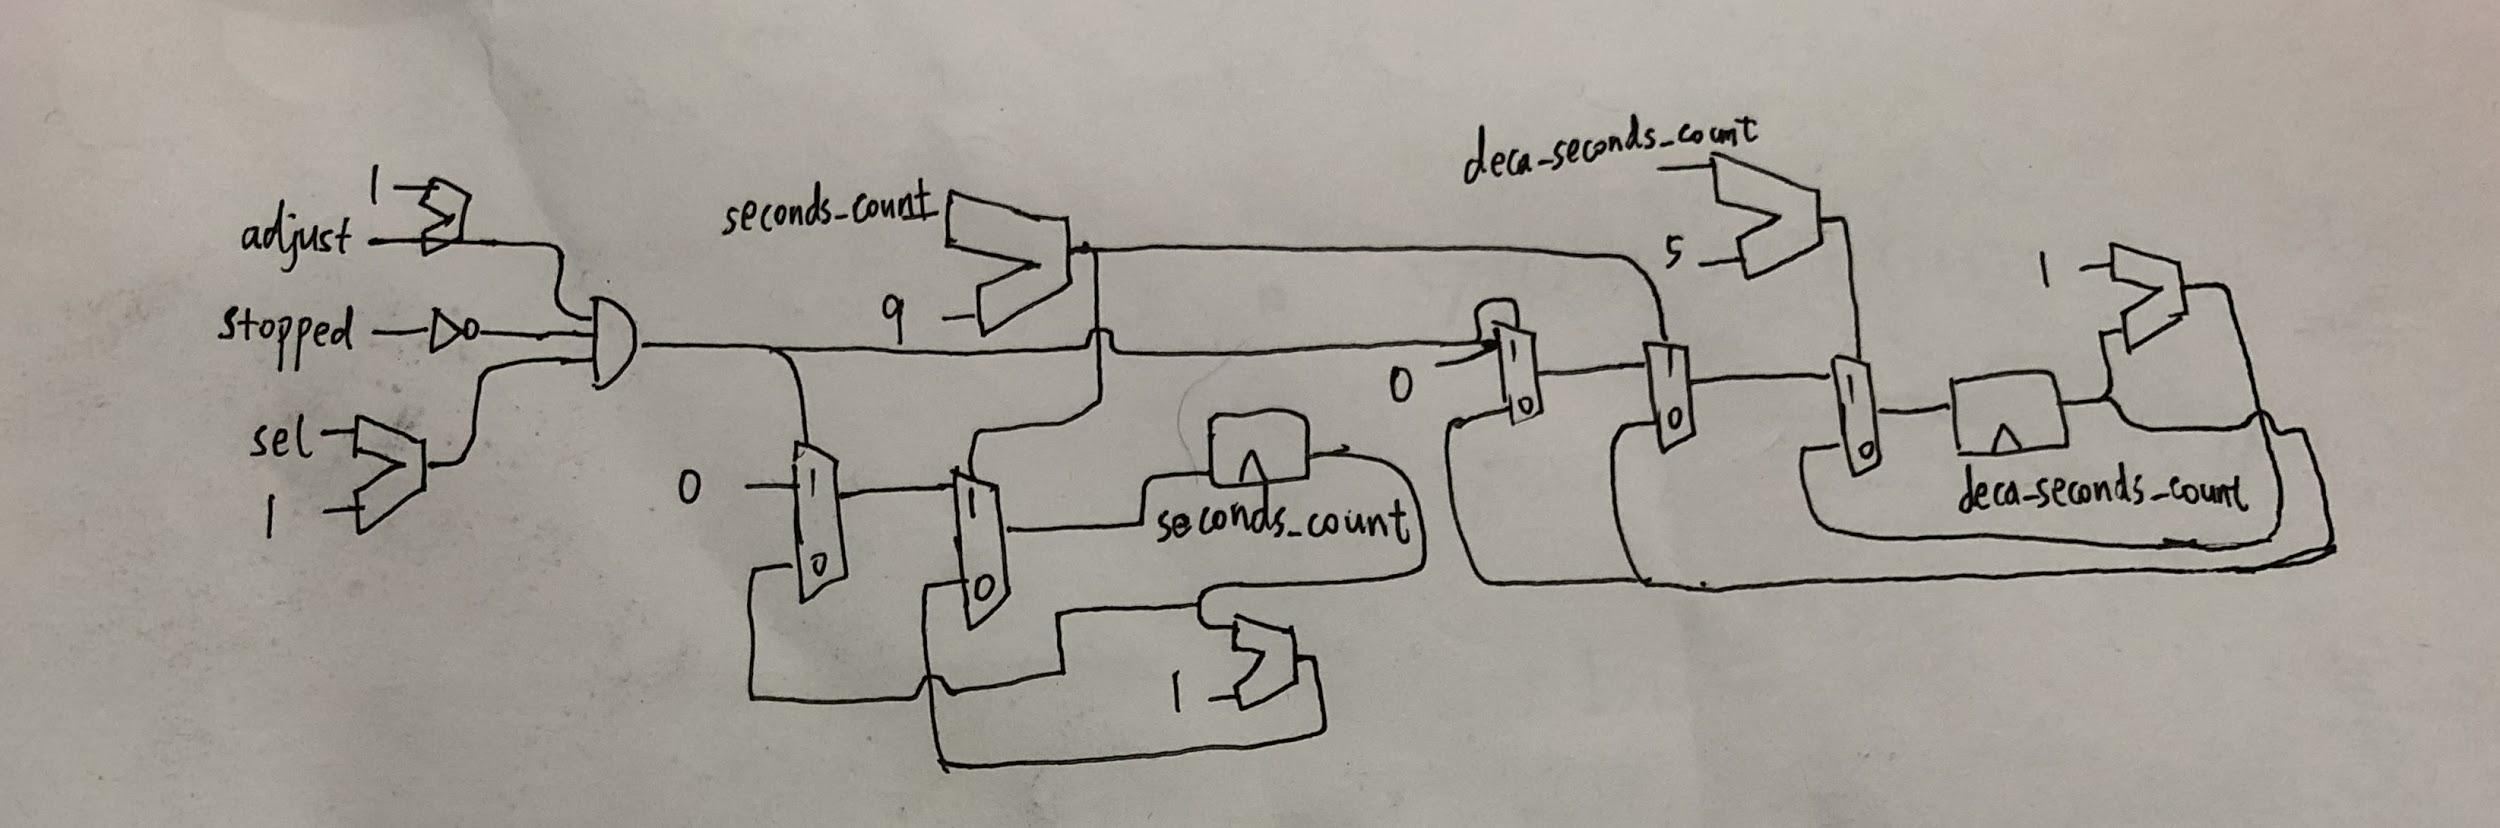 1
adjust
stopped
sel
1
seconds_count
9
0
1
0
1
0
seconds_count
1
0
1
0
deca_seconds_count
5
1
0
1
0
deca_seconds_count
1